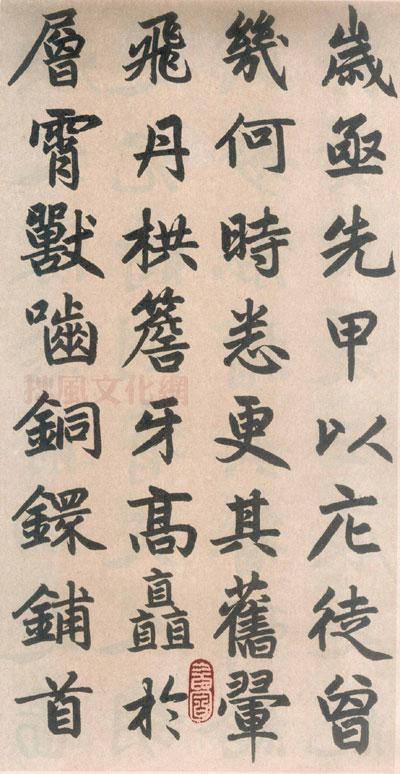 歲亟先甲以庀徒曾
幾何時悉更其舊翬
飛丹栱簷牙高矗於
層霄獸嚙銅鐶鋪首
拙風文化網